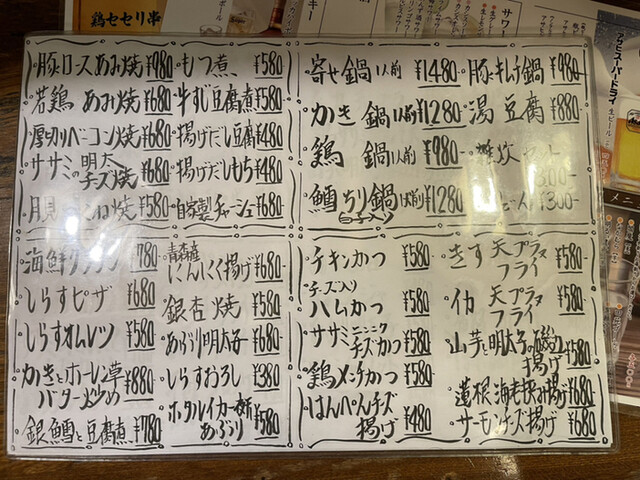 鶏セセリ串
アサヒスーパードライ
豚ロースあみ焼 ¥980
若鶏 あみ焼 ¥680
厚切ベーコン焼 ¥680
ササミの明太チーズ焼 ¥680
月見つくね焼 ¥580
もつ煮 ¥580
牛すじ豆腐煮 ¥580
揚げだし豆腐 ¥480
揚げだしもち ¥480
自家製チャーシュー ¥680
寄せ鍋 1人前 ¥1480
かき鍋 1人前 ¥1280
鶏鍋 1人前 ¥980
鱈ちり鍋 1人前 ¥1280
豚キムチ鍋 ¥980
湯豆腐 ¥880
雑炊セット
300-
¥300-
海鮮グラタン 780
しらすピザ ¥680
しらすオムレツ ¥580
かきとホーレン草
バター炒め ¥880
銀鱈と豆腐煮 ¥780
青森産
にんにく揚げ ¥680
銀杏焼 ¥580
あぶり明太子 ¥680
しらすおろし ¥380
ホタルイカ一夜干
あぶり ¥580
チキンかつ ¥580
チーズ入り
ハムかつ ¥580
ササミニンニク
チーズかつ ¥580
鶏メンチかつ ¥580
はんぺんチーズ
揚げ ¥480
きす 天プラ又
フライ ¥580
イカ 天プラ又
フライ ¥580
山芋と明太子の磯辺
揚げ ¥580
蓮根海老挟み揚げ ¥680
サーモンチーズ揚げ ¥680